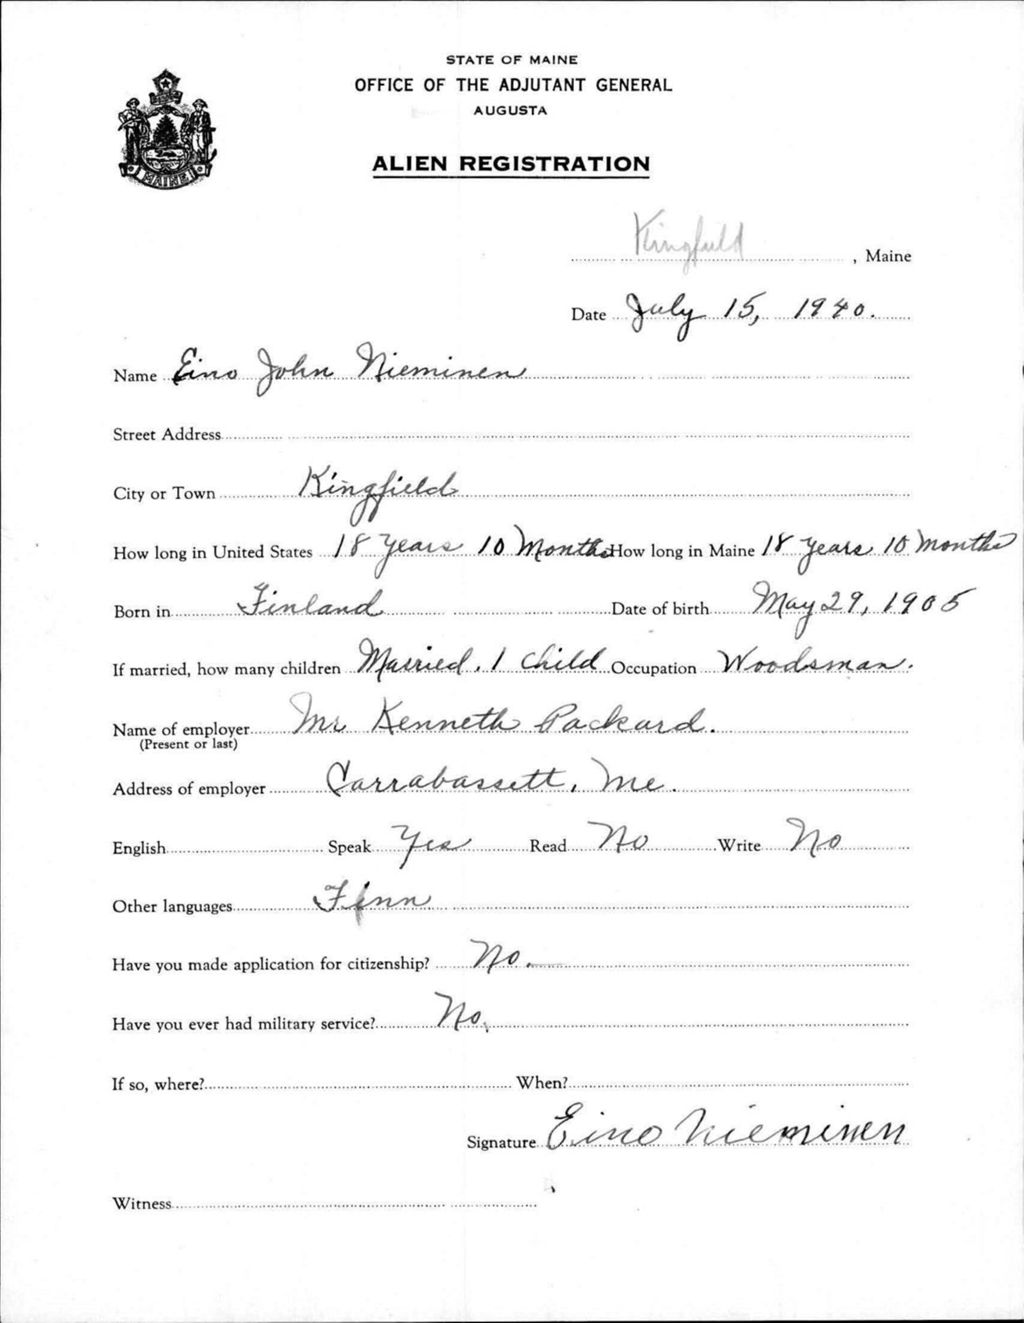 STATE OF MAINE
OFFICE OF THE ADJUTANT GENERAL
AUGUSTA
ALIEN REGISTRATION
MAINE
Kingfield, Maine
Date July 15, 1940.
Name Eino John Nieminen
Street Address
City or Town Kingfield
How long in United States 18 years 10 Months How long in Maine 18 years 10 months
Born in Finland Date of birth May 29, 1905
If married, how many children Married. 1 Child Occupation Woodsman.
Name of employer Mr Kenneth Packard.
(Present or last)
Address of employer Carrabassett, Me.
English Speak Yes Read No Write No
Other languages Finn
Have you made application for citizenship? No.
Have you ever had military service? No.
If so, where? When?
Signature Eino Nieminen
Witness